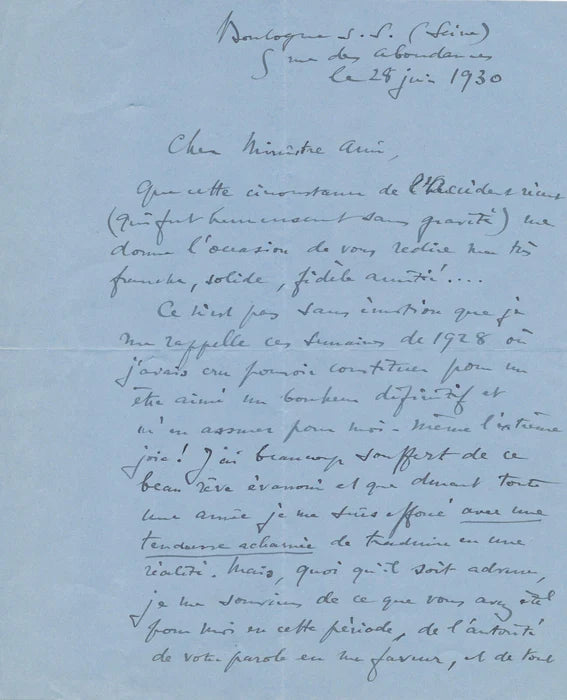 Boulogne s. S. (Seine)
5 rue des abondances
le 28 juin 1930
Cher Ministre Ami,
Que cette circonstance de l'Accident récent
(qui fut heureusement sans gravité) me
donne l'occasion de vous redire ma très
franche, solide, fidèle amitié!....
Ce n'est pas sans émotion que je
me rappelle ces semaines de 1928 où
j'avais cru pouvoir constituer pour un
être aimé un bonheur définitif et
m'en assurer pour moi-même l'extrême
joie! J'ai beaucoup souffert de ce
beau rêve évanoui et que durant toute
une année je me suis efforcé avec une
tendresse acharnée de traduire en une
réalité. Mais, quoi qu'il soit advenu,
je me souviens de ce que vous avez été
pour moi en cette période, de l'autorité
de votre parole en ma faveur, et de tout